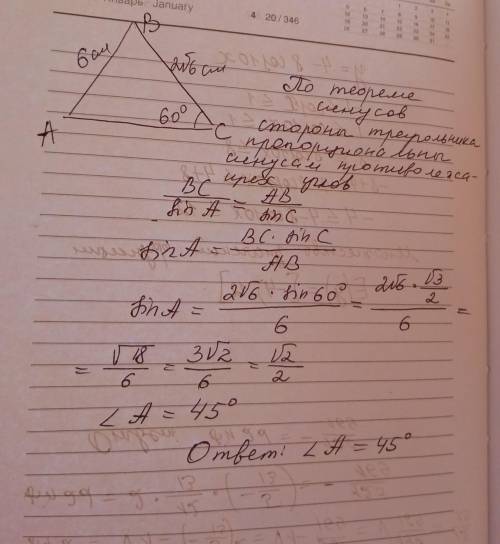 Январь January
4 20 / 346
B
6 см
2√6 см
60°
A
C
По теореме
синусов
стороны треугольника
пропорциональны
синусам противолежа-
щих углов
BC/sin A = AB/sin C
sin A = BC · sin C/AB
sin A = 2√6 · sin 60°/6 = 2√6 · √3/2/6 =
= √18/6 = 3√2/6 = √2/2
∠ A = 45°
Ответ: ∠ A = 45°